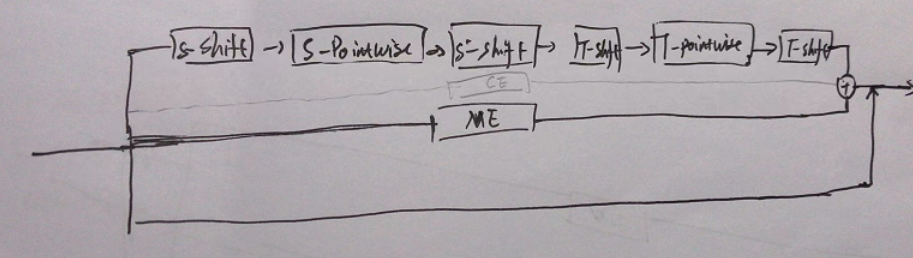 S-Shift S-Pointwise S-shift T-shift T-pointwise T-shift
CE
+
ME